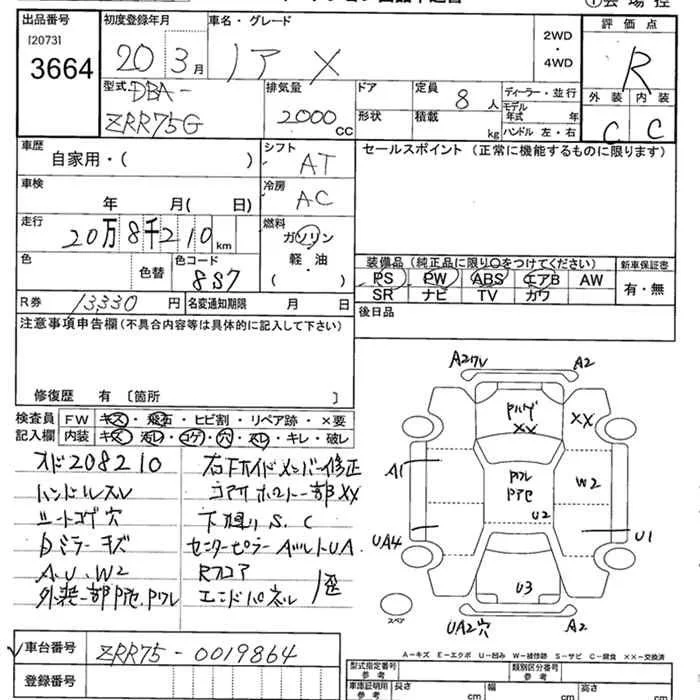 出品番号
[2073]
3664
初度登録年月
20年3月
車名・グレード
ノア X
2WD
・
4WD
評価点
R
外装 内装
C C
型式 DBA-
ZRR75G
排気量
2000cc
ドア
形状
定員 8人
積載 kg
ディーラー・並行
モデル年式 年
ハンドル 左・右
車歴
自家用・( )
シフト
AT
セールスポイント(正常に機能するものに限ります)
車検
年 月( 日)
冷房
AC
走行
20万8千210km
燃料
ガソリン
軽・油
( ・ )
色
色替
色コード
8S7
装備品(純正品に限り○をつけてください)
PS PW ABS エアB AW
SR ナビ TV カワ
新車保証書
有・無
R券 13330円
名変通知期限 月 日
後日品
注意事項申告欄(不具合内容等は具体的に記入して下さい)
修復歴 有 〔箇所 〕
検査員
記入欄
FW キズ・飛石・ヒビ割・リペア跡・×要
内装 キズ・汚レ・コゲ・穴・スレ・キレ・破レ
オド208210
ハンドルスレ
シートコゲ穴
ミラーキズ
A.U.W2
外装一部P色.Pワレ
右Fサイドメンバー修正
コアサポート一部XX
下廻りS.C
センターピラーAボルトUA
Rフロア
エンドパネル 歪
A2
A2
XX
XX
A1
W2
U2
UA4
U1
U3
UA2穴
A2
スペア
A-キズ E-エクボ U-凹み W-補修跡 S-サビ C-腐食 XX-交換済
車台番号
ZRR75-0019864
登録番号
型式指定番号
参考
類別区分番号
参考
車庫証明用
参考
長さ cm
幅 cm
高さ cm